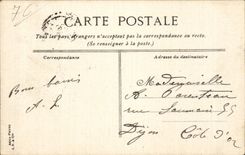 CARTE POSTALE
Tous les pays étrangers n'acceptent pas la correspondance au recto.
(Se renseigner à la poste.)
Correspondance
Adresse du destinataire
Bons baisers
A. L
Mademoiselle
A.
rue 55
Dijon Côte d'or